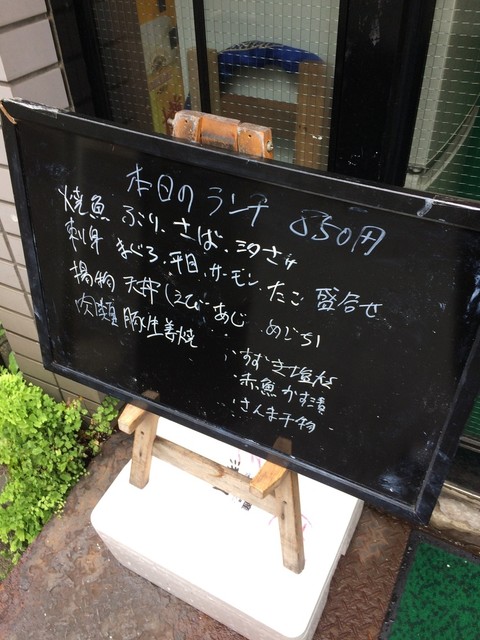 本日のランチ 850円
焼魚 ぶり、さば、汐さけ
刺身 まぐろ、平目、サーモン、たこ 盛合せ
揚物 天丼(えび あじ めじち)
豚生姜焼
・すずき塩焼
・赤魚かす漬
・さんま干物